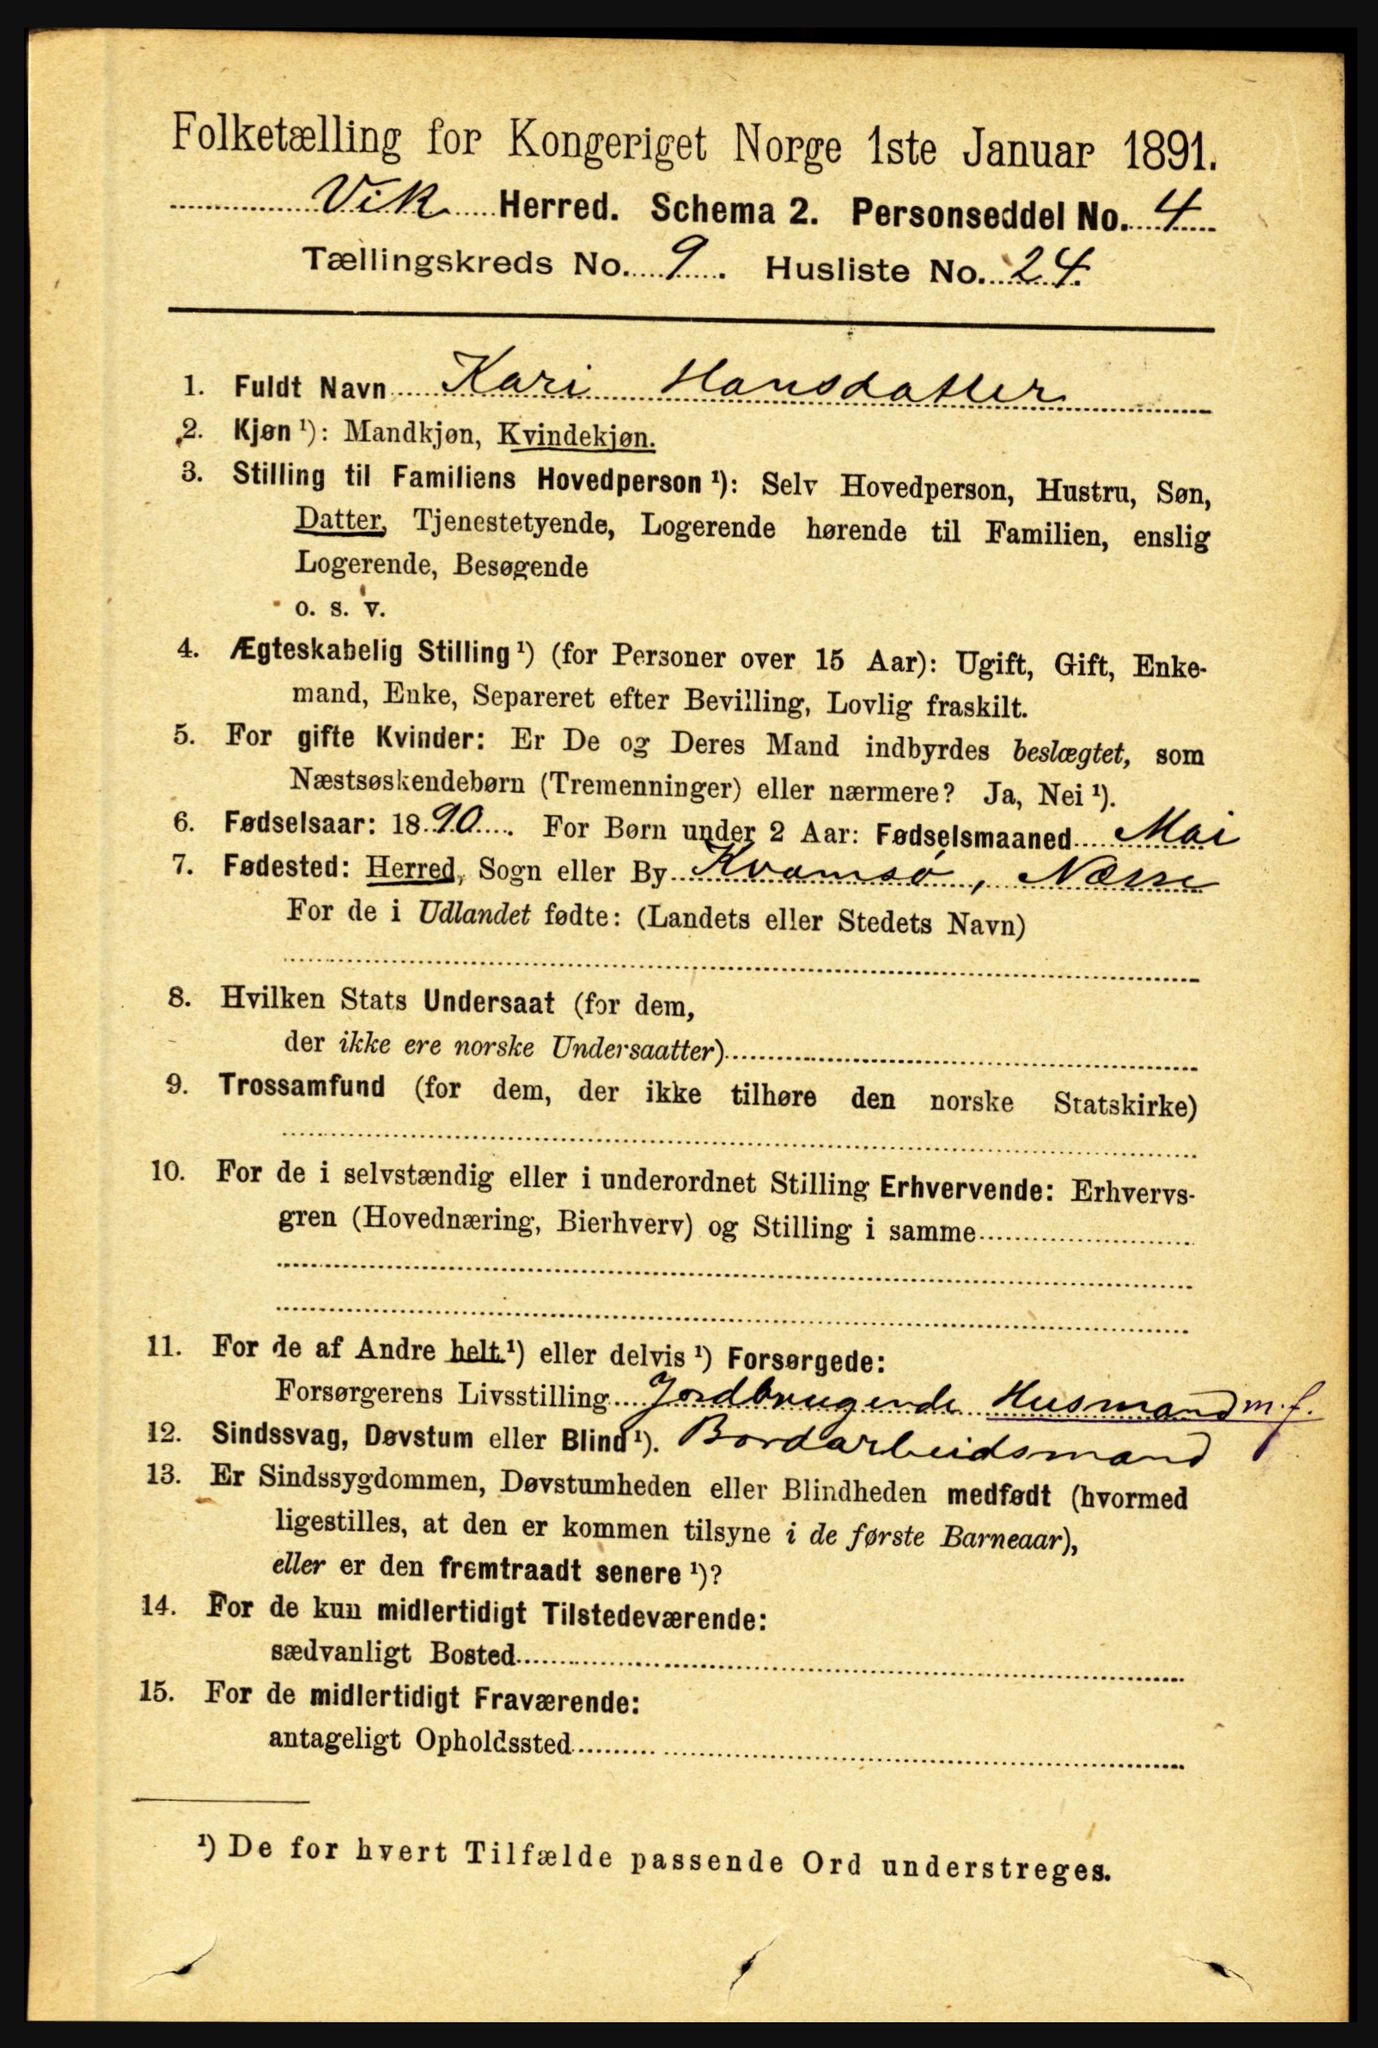 Folketælling for Kongeriget Norge 1ste Januar 1891.
Vik Herred. Schema 2. Personseddel No. 4
Tællingskreds No. 9. Husliste No. 24.
1. Fuldt Navn Kari Hansdatter
2. Kjøn ¹): Mandkjøn, Kvindekjøn.
3. Stilling til Familiens Hovedperson ¹): Selv Hovedperson, Hustru, Søn,
Datter, Tjenestetyende, Logerende hørende til Familien, enslig
Logerende, Besøgende
o. s. v.
4. Ægteskabelig Stilling ¹) (for Personer over 15 Aar): Ugift, Gift, Enke-
mand, Enke, Separeret efter Bevilling, Lovlig fraskilt.
5. For gifte Kvinder: Er De og Deres Mand indbyrdes beslægtet, som
Næstsøskendebørn (Tremenninger) eller nærmere? Ja, Nei ¹).
6. Fødselsaar: 1890. For Børn under 2 Aar: Fødselsmaaned Mai
7. Fødested: Herred, Sogn eller By Kvamsø, Næsse
For de i Udlandet fødte: (Landets eller Stedets Navn)
8. Hvilken Stats Undersaat (for dem,
der ikke ere norske Undersaatter)
9. Trossamfund (for dem, der ikke tilhøre den norske Statskirke)
10. For de i selvstændig eller i underordnet Stilling Erhvervende: Erhvervs-
gren (Hovednæring, Bierhverv) og Stilling i samme
11. For de af Andre helt ¹) eller delvis ¹) Forsørgede:
Forsørgerens Livsstilling Jordbrugende Husmand m. f.
12. Sindssvag, Døvstum eller Blind ¹). Bordarbeidsmand
13. Er Sindssygdommen, Døvstumheden eller Blindheden medfødt (hvormed
ligestilles, at den er kommen tilsyne i de første Barneaar),
eller er den fremtraadt senere ¹)?
14. For de kun midlertidigt Tilstedeværende:
sædvanligt Bosted
15. For de midlertidigt Fraværende:
antageligt Opholdssted
¹) De for hvert Tilfælde passende Ord understreges.